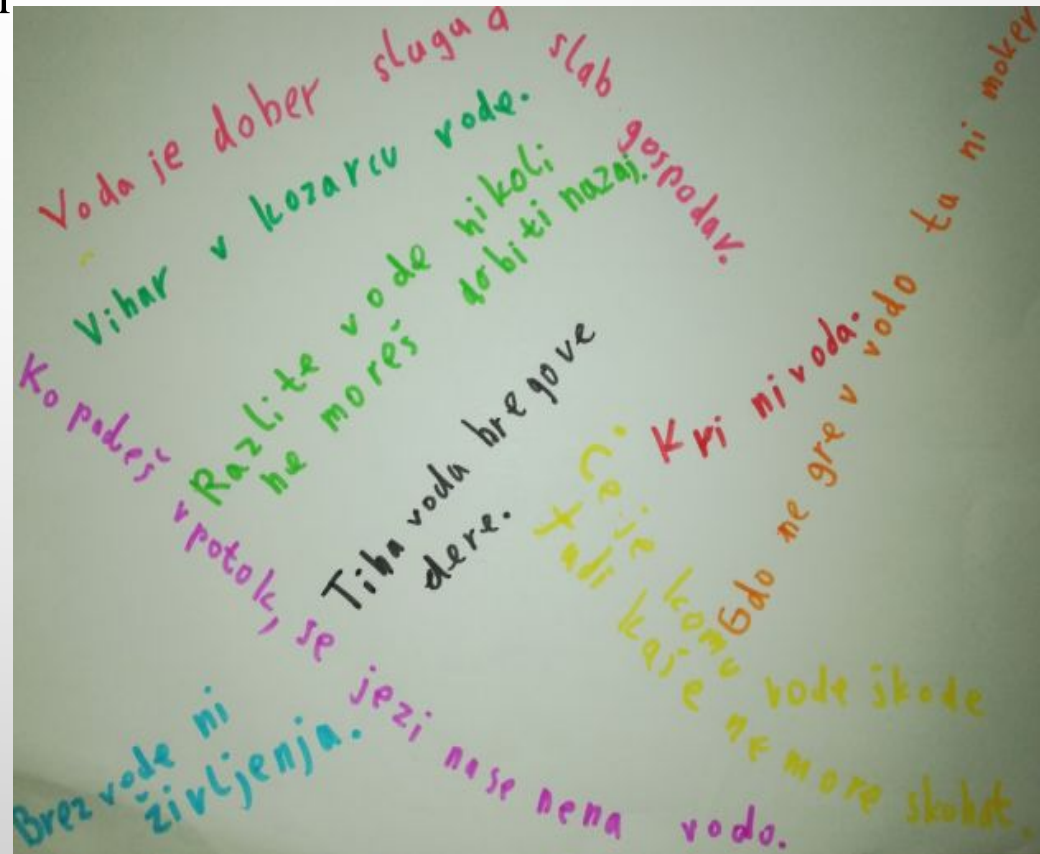 Voda je dober sluga a slab gospodar.
Vihar v kozarcu vode.
Razlite vode nikoli
ne moreš dobiti nazaj.
Ko padeš v potok, se jezi nase ne na vodo.
Tiha voda bregove
dere.
Kri ni voda.
Gdo ne gre v vodo ta ni moker
Če je komu vode škode
tadi kaj e ne more
Brez vode ni
življenja.